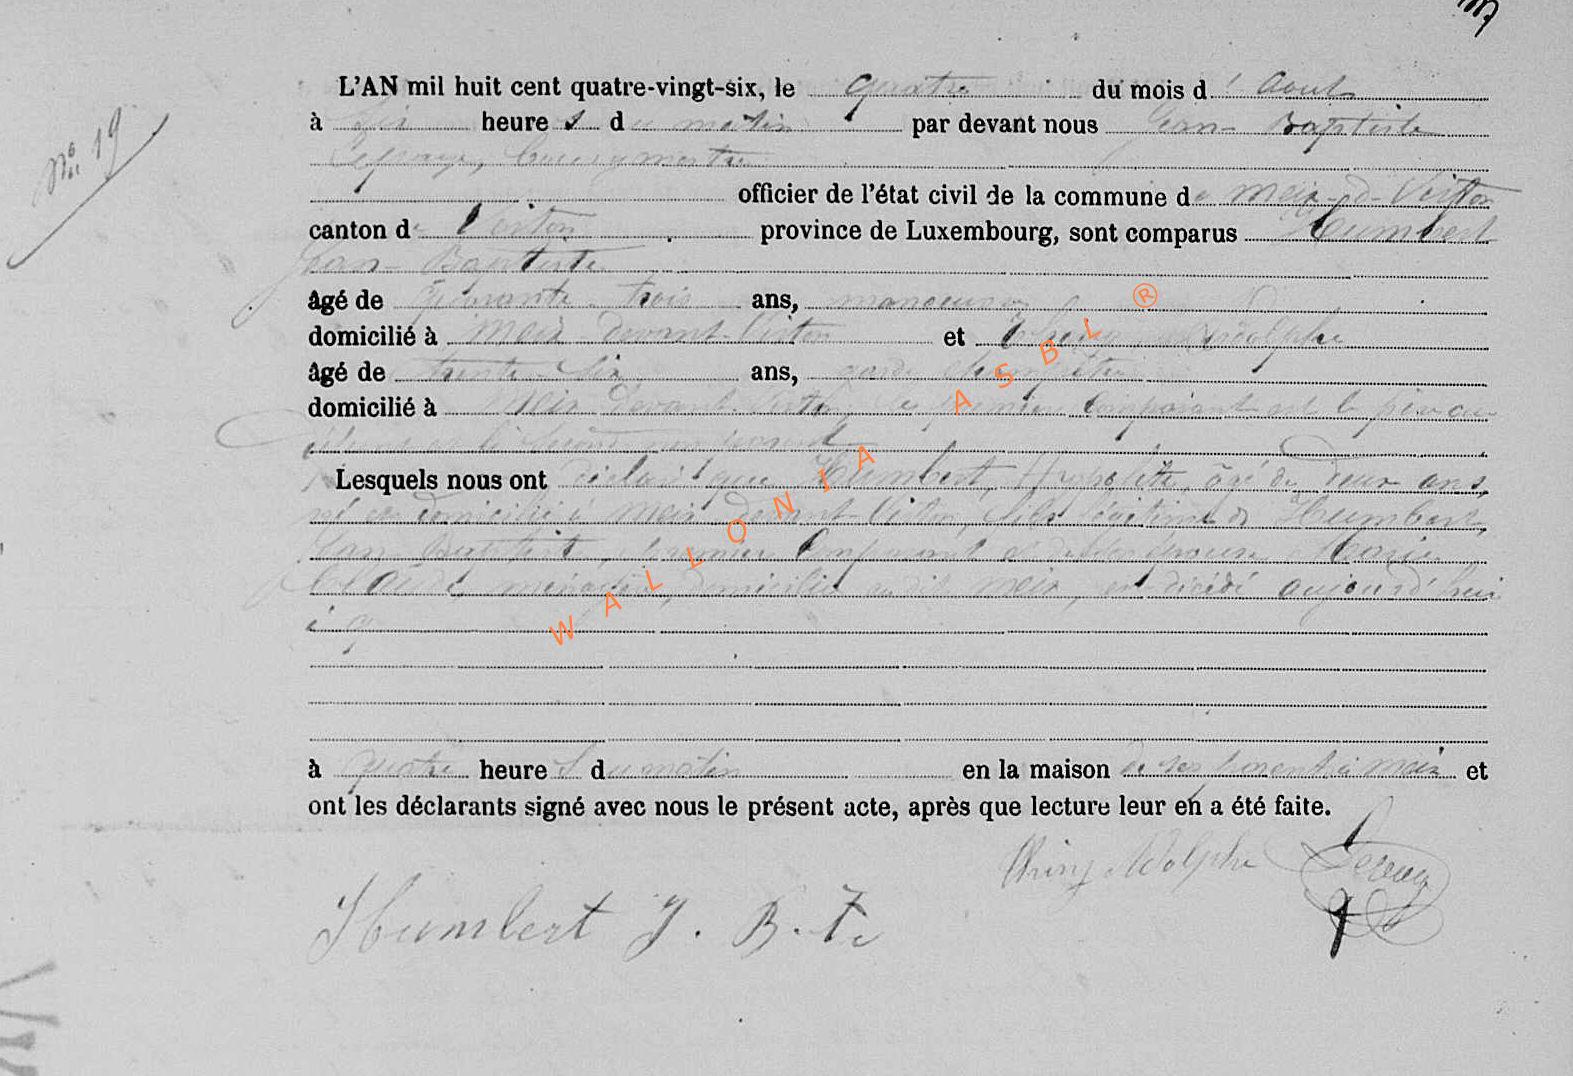 No. 19
L'AN mil huit cent quatre-vingt-six, le quatre du mois d'Aout
à six heures du matin par devant nous Jean-Baptiste
bourgmestre
officier de l'état civil de la commune de Meix-d-Virton
canton de Virton province de Luxembourg, sont comparus Humbert
Jean-Baptiste
âgé de quarante-trois ans, manoeuvre
domicilié à Meix-devant-Virton et Adolphe
âgé de trente-six ans, garde champêtre
domicilié à Meix-devant-Virton le premier comparant est le père du
défunt et le second non parent
Lesquels nous ont déclaré que Humbert, Hypolite, âgé de deux ans,
né et domicilié à Meix-devant-Virton, fils légitime de Humbert,
Jean Baptiste, premier comparant et de son épouse Marie
ménagère, domiciliée audit Meix, est décédé aujourd'hui
à quatre heures du matin en la maison de ses parents à Meix et
ont les déclarants signé avec nous le présent acte, après que lecture leur en a été faite.
Adolphe
Humbert J. B. Te
WALLONIA ASBL ®